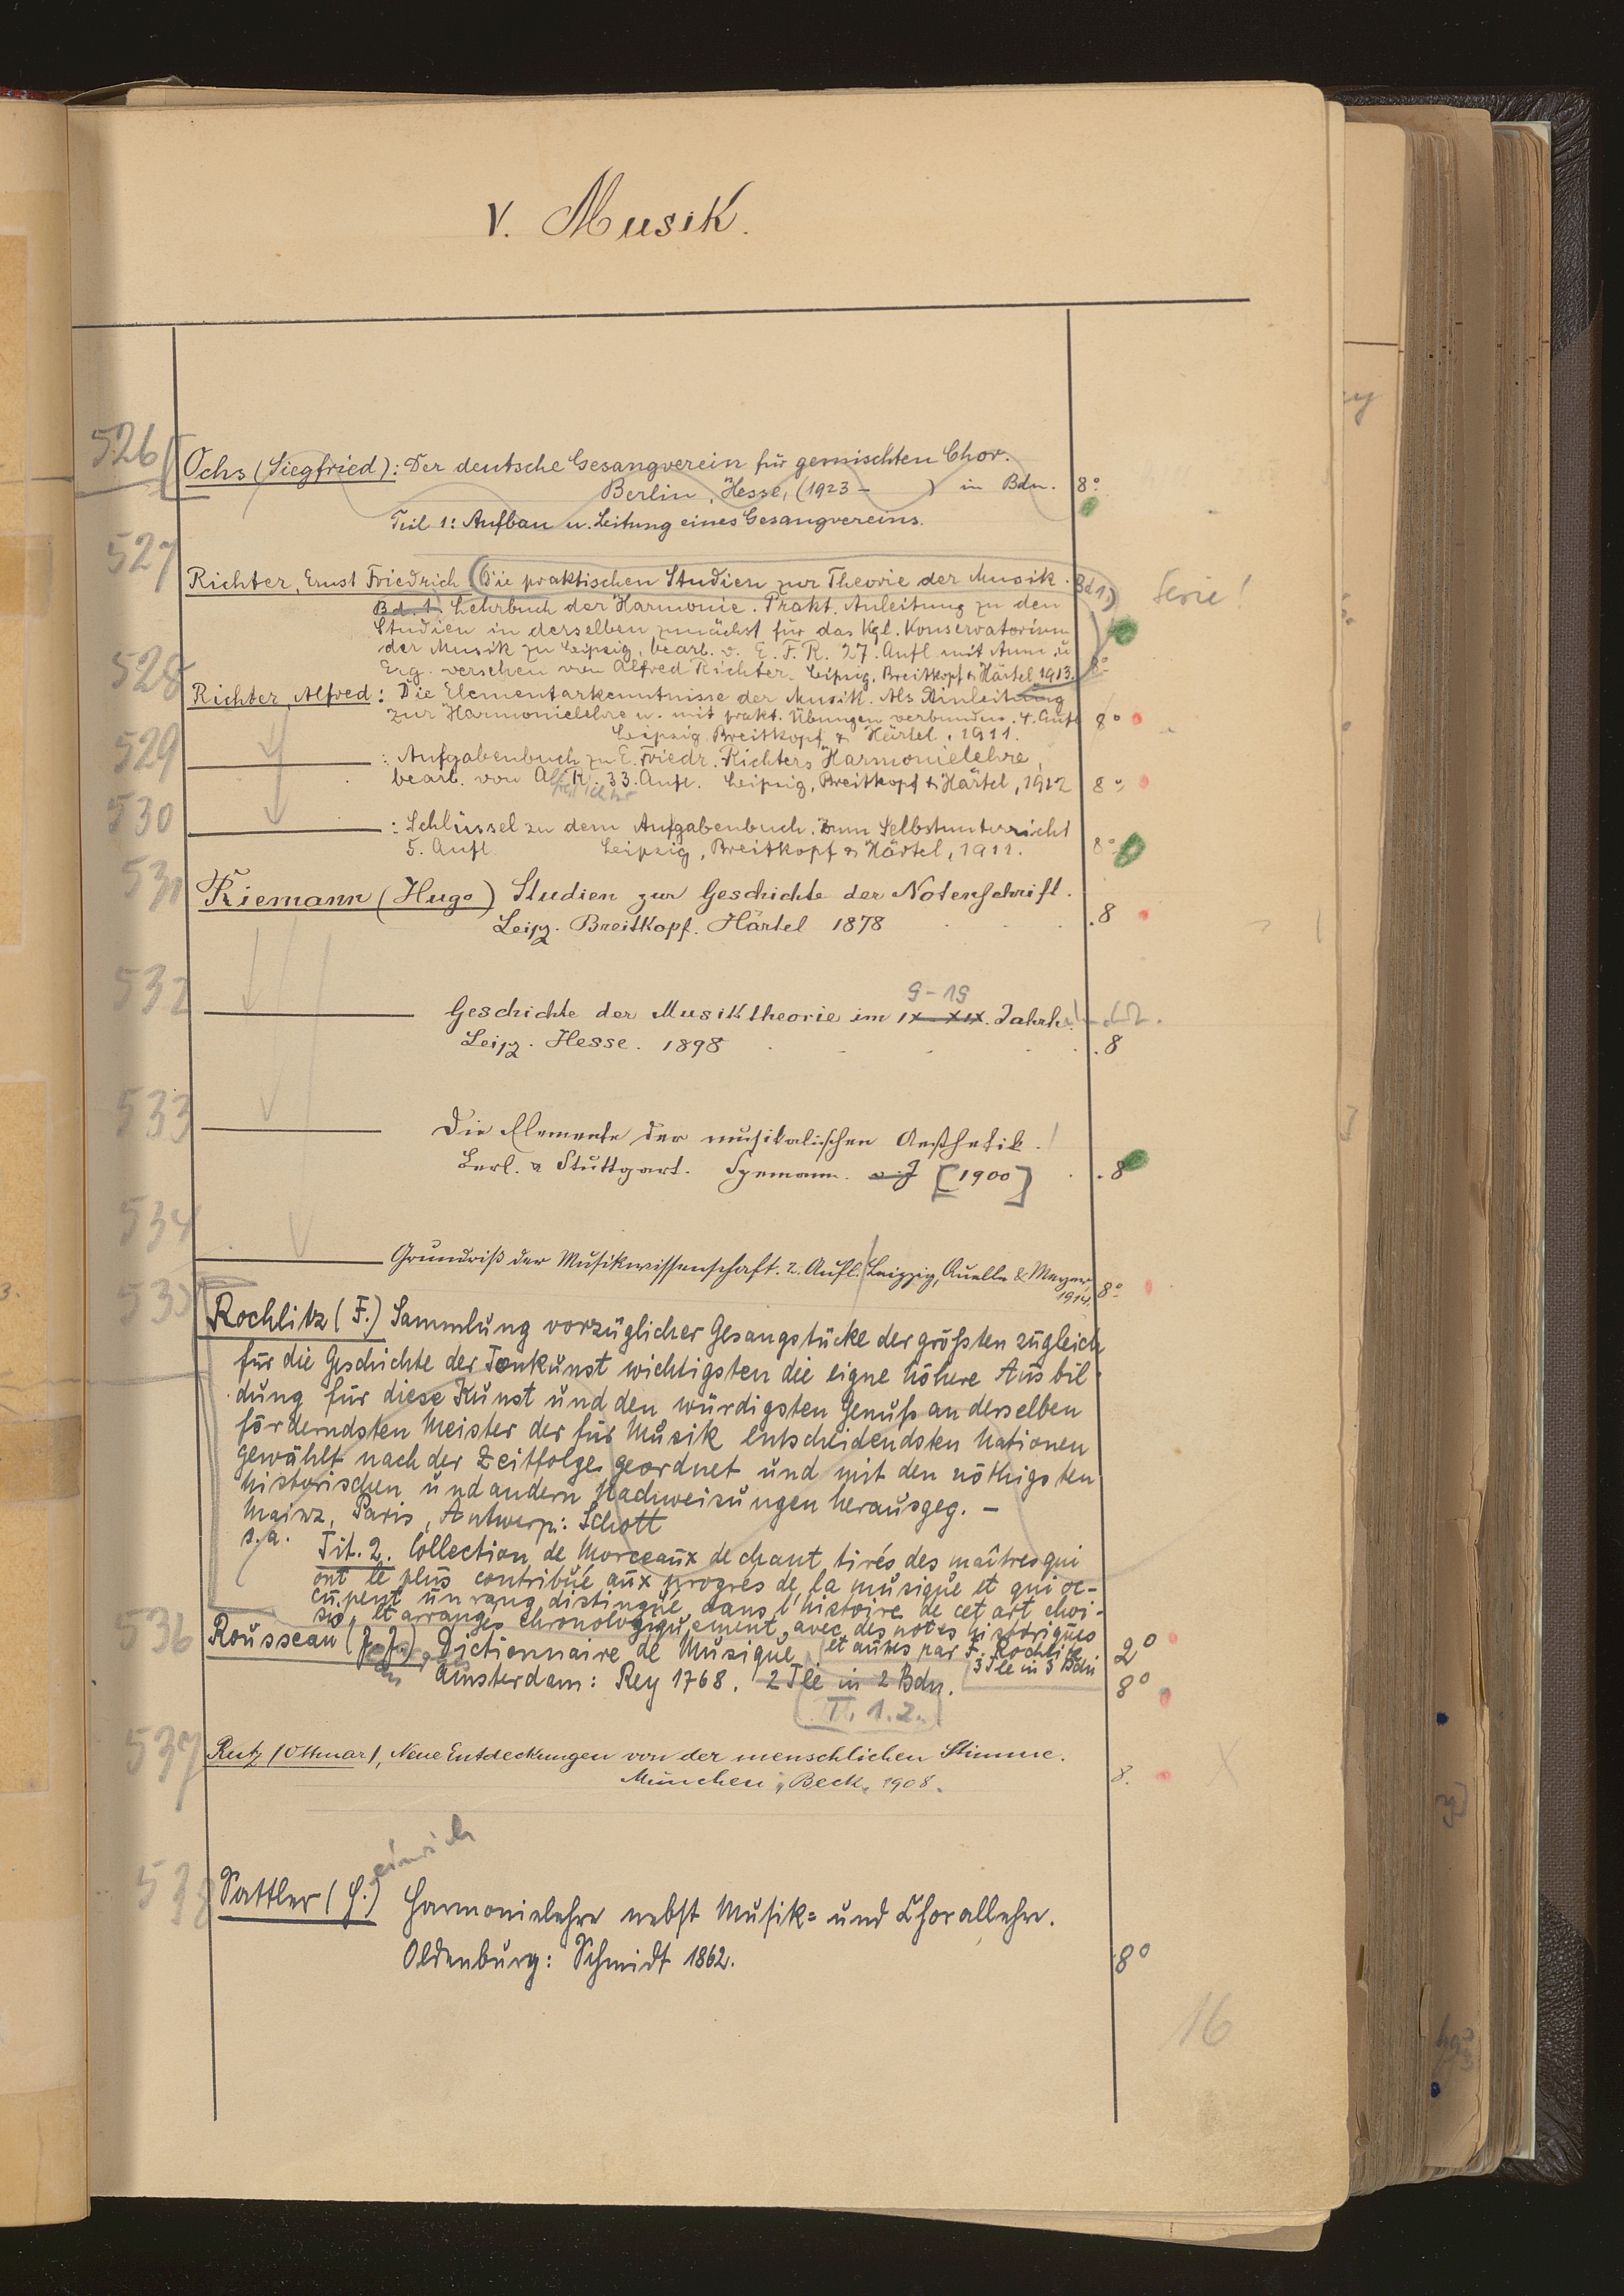 V. Musik.
526
Ochs (Siegfried): Der deutsche Gesangverein für gemischten Chor.
Berlin, Hesse, (1923 – ) in Bdn. 8°
Teil 1: Aufbau u. Leitung eines Gesangvereins.
527
Richter, Ernst Friedrich (Die praktischen Studien zur Theorie der Musik. Bd 1.) Serie!
Bd. 1. Lehrbuch der Harmonie. Prakt. Anleitung zu den
Studien in derselben zunächst für das Kgl. Konservatorium
der Musik zu Leipzig, bearb. v. E. F. R. 27. Aufl. mit Anm. u
Erg. versehen von Alfred Richter. Leipzig, Breitkopf & Härtel 1913. 8°
528
Richter, Alfred: Die Elementarkenntnisse der Musik. Als Einleitung
zur Harmonielehre u. mit prakt. Übungen verbunden. 4. Aufl 8°
Leipzig, Breitkopf & Härtel, 1911.
529
: Aufgabenbuch zu E. Friedr. Richters Harmonielehre,
bearb. von Alfr. R. 33. Aufl. Leipzig, Breitkopf & Härtel, 1912 8°
530
: Schlüssel zu dem Aufgabenbuch. Zum Selbstunterricht
5. Aufl. Leipzig, Breitkopf & Härtel, 1911. 8°
531
Riemann (Hugo) Studien zur Geschichte der Notenschrift.
Leipz. Breitkopf. Härtel 1878 . 8
532
9-19
Geschichte der Musiktheorie im IX – XIX. Jahrh.
Leipz. Hesse. 1898 . 8
533
Die Elemente der musikalischen Aesthetik.
Berl. & Stuttgart. Spemann. o. J [1900] . 8
534
Grundriß der Musikwissenschaft. 2. Aufl. Leipzig, Quelle & Meyer, 8°
1914.
535
Rochlitz (F.) Sammlung vorzüglicher Gesangstücke der größten zugleich
für die Geschichte der Tonkunst wichtigsten die eigne höhere Ausbil
dung für diese Kunst und den würdigsten Genuß an derselben
förderndsten Meister der für Musik entscheidendsten Nationen
gewählt nach der Zeitfolge geordnet und mit den nöthigsten
historischen und andern Nachweisungen herausgeg. –
Mainz, Paris, Antwerp.: Schott
s. a.
Tit. 2. Collection de Morceaux de chant tirés des maîtres qui
ont le plus contribué aux progrès de la musique et qui oc-
cupent un rang distingué dans l'histoire de cet art choi-
sis et arrangés chronologiquement avec des notes historiques
et autres par F. Rochlitz
3 Tle in 3 Bdn 2°
536
Rousseau (J. J.) Dictionnaire de Musique
Amsterdam: Rey 1768. 2 Tle in 2 Bdn. 8°
T. 1. 2.
537
Rutz (Ottmar), Neue Entdeckungen von der menschlichen Stimme.
München, Beck, 1908. 8. X
538
einrich
Sattler (H.) Harmonielehre nebst Musik- und Chorallehre.
Oldenburg: Schmidt 1862. 8°
16